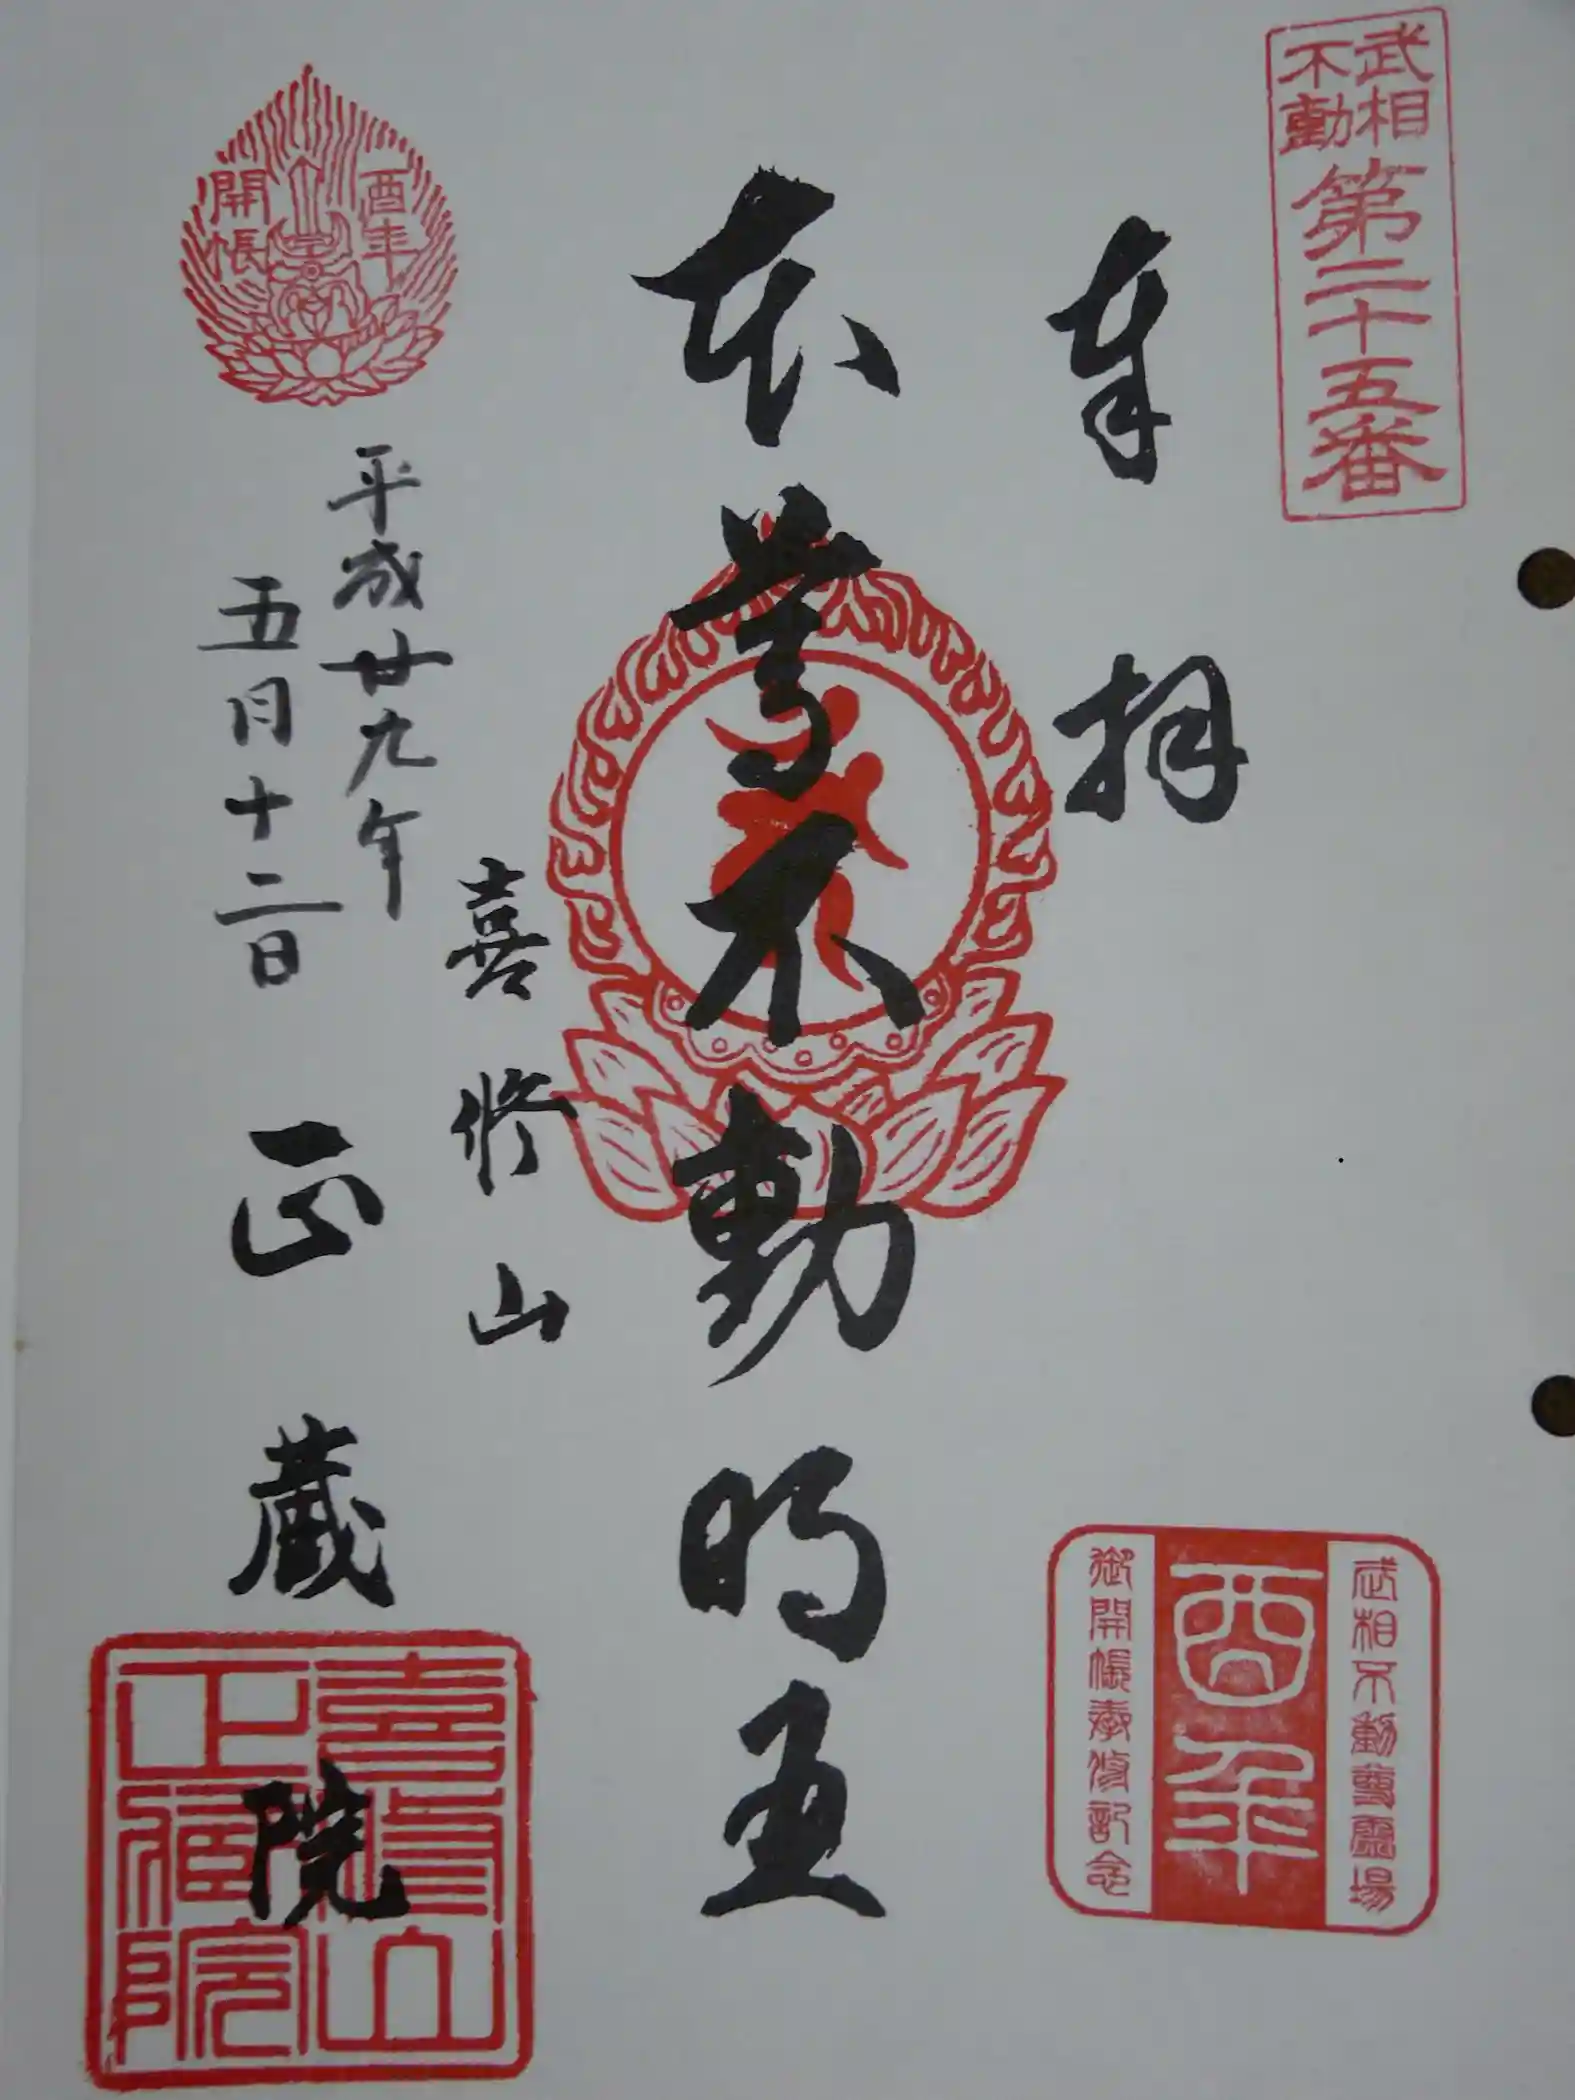 武相
不動
第二十五番
奉拝
本尊不動明王
喜修山
正蔵院
平成廿九年
五月十二日
酉年
開帳
武相不動尊霊場
酉年
御開帳奉修記念